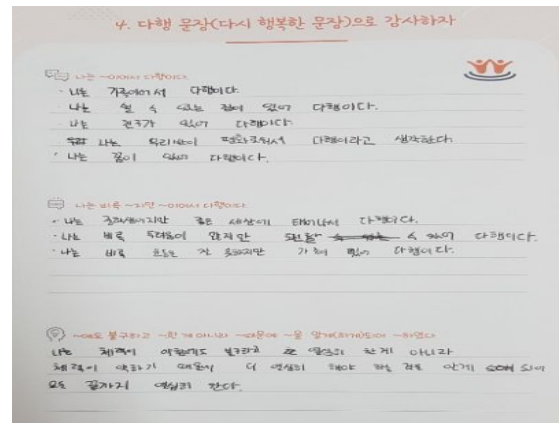 4. 다행 문장(다시 행복한 문장)으로 감사하자
나는 ~이어서 다행이다.
· 나는 가족이어서 다행이다.
· 나는 쉴 수 있는 집이 있어 다행이다.
나는 친구가 있어 다행이다.
나는 우리반이 평화로워서 다행이라고 생각한다.
· 나는 꿈이 있어 다행이다.
나는 비록 ~지만 ~이어서 다행이다.
· 나는 이지만 좋은 세상에 태어나서 다행이다.
· 나는 비록 두려움이 많지만 수 있어 다행이다.
· 나는 비록 잘 못하지만 가족이 있어 다행이다.
~에도 불구하고 ~한 게 아니라 ~때문에 ~을 알게(하게)되어 ~하였다
나는 체력이 약함에도 불구하고 열심히 한게 아니라
체력이 약하기 때문에 더 열심히 해야 하는 것을 알게 되어
모두 끝까지 열심히 한다.